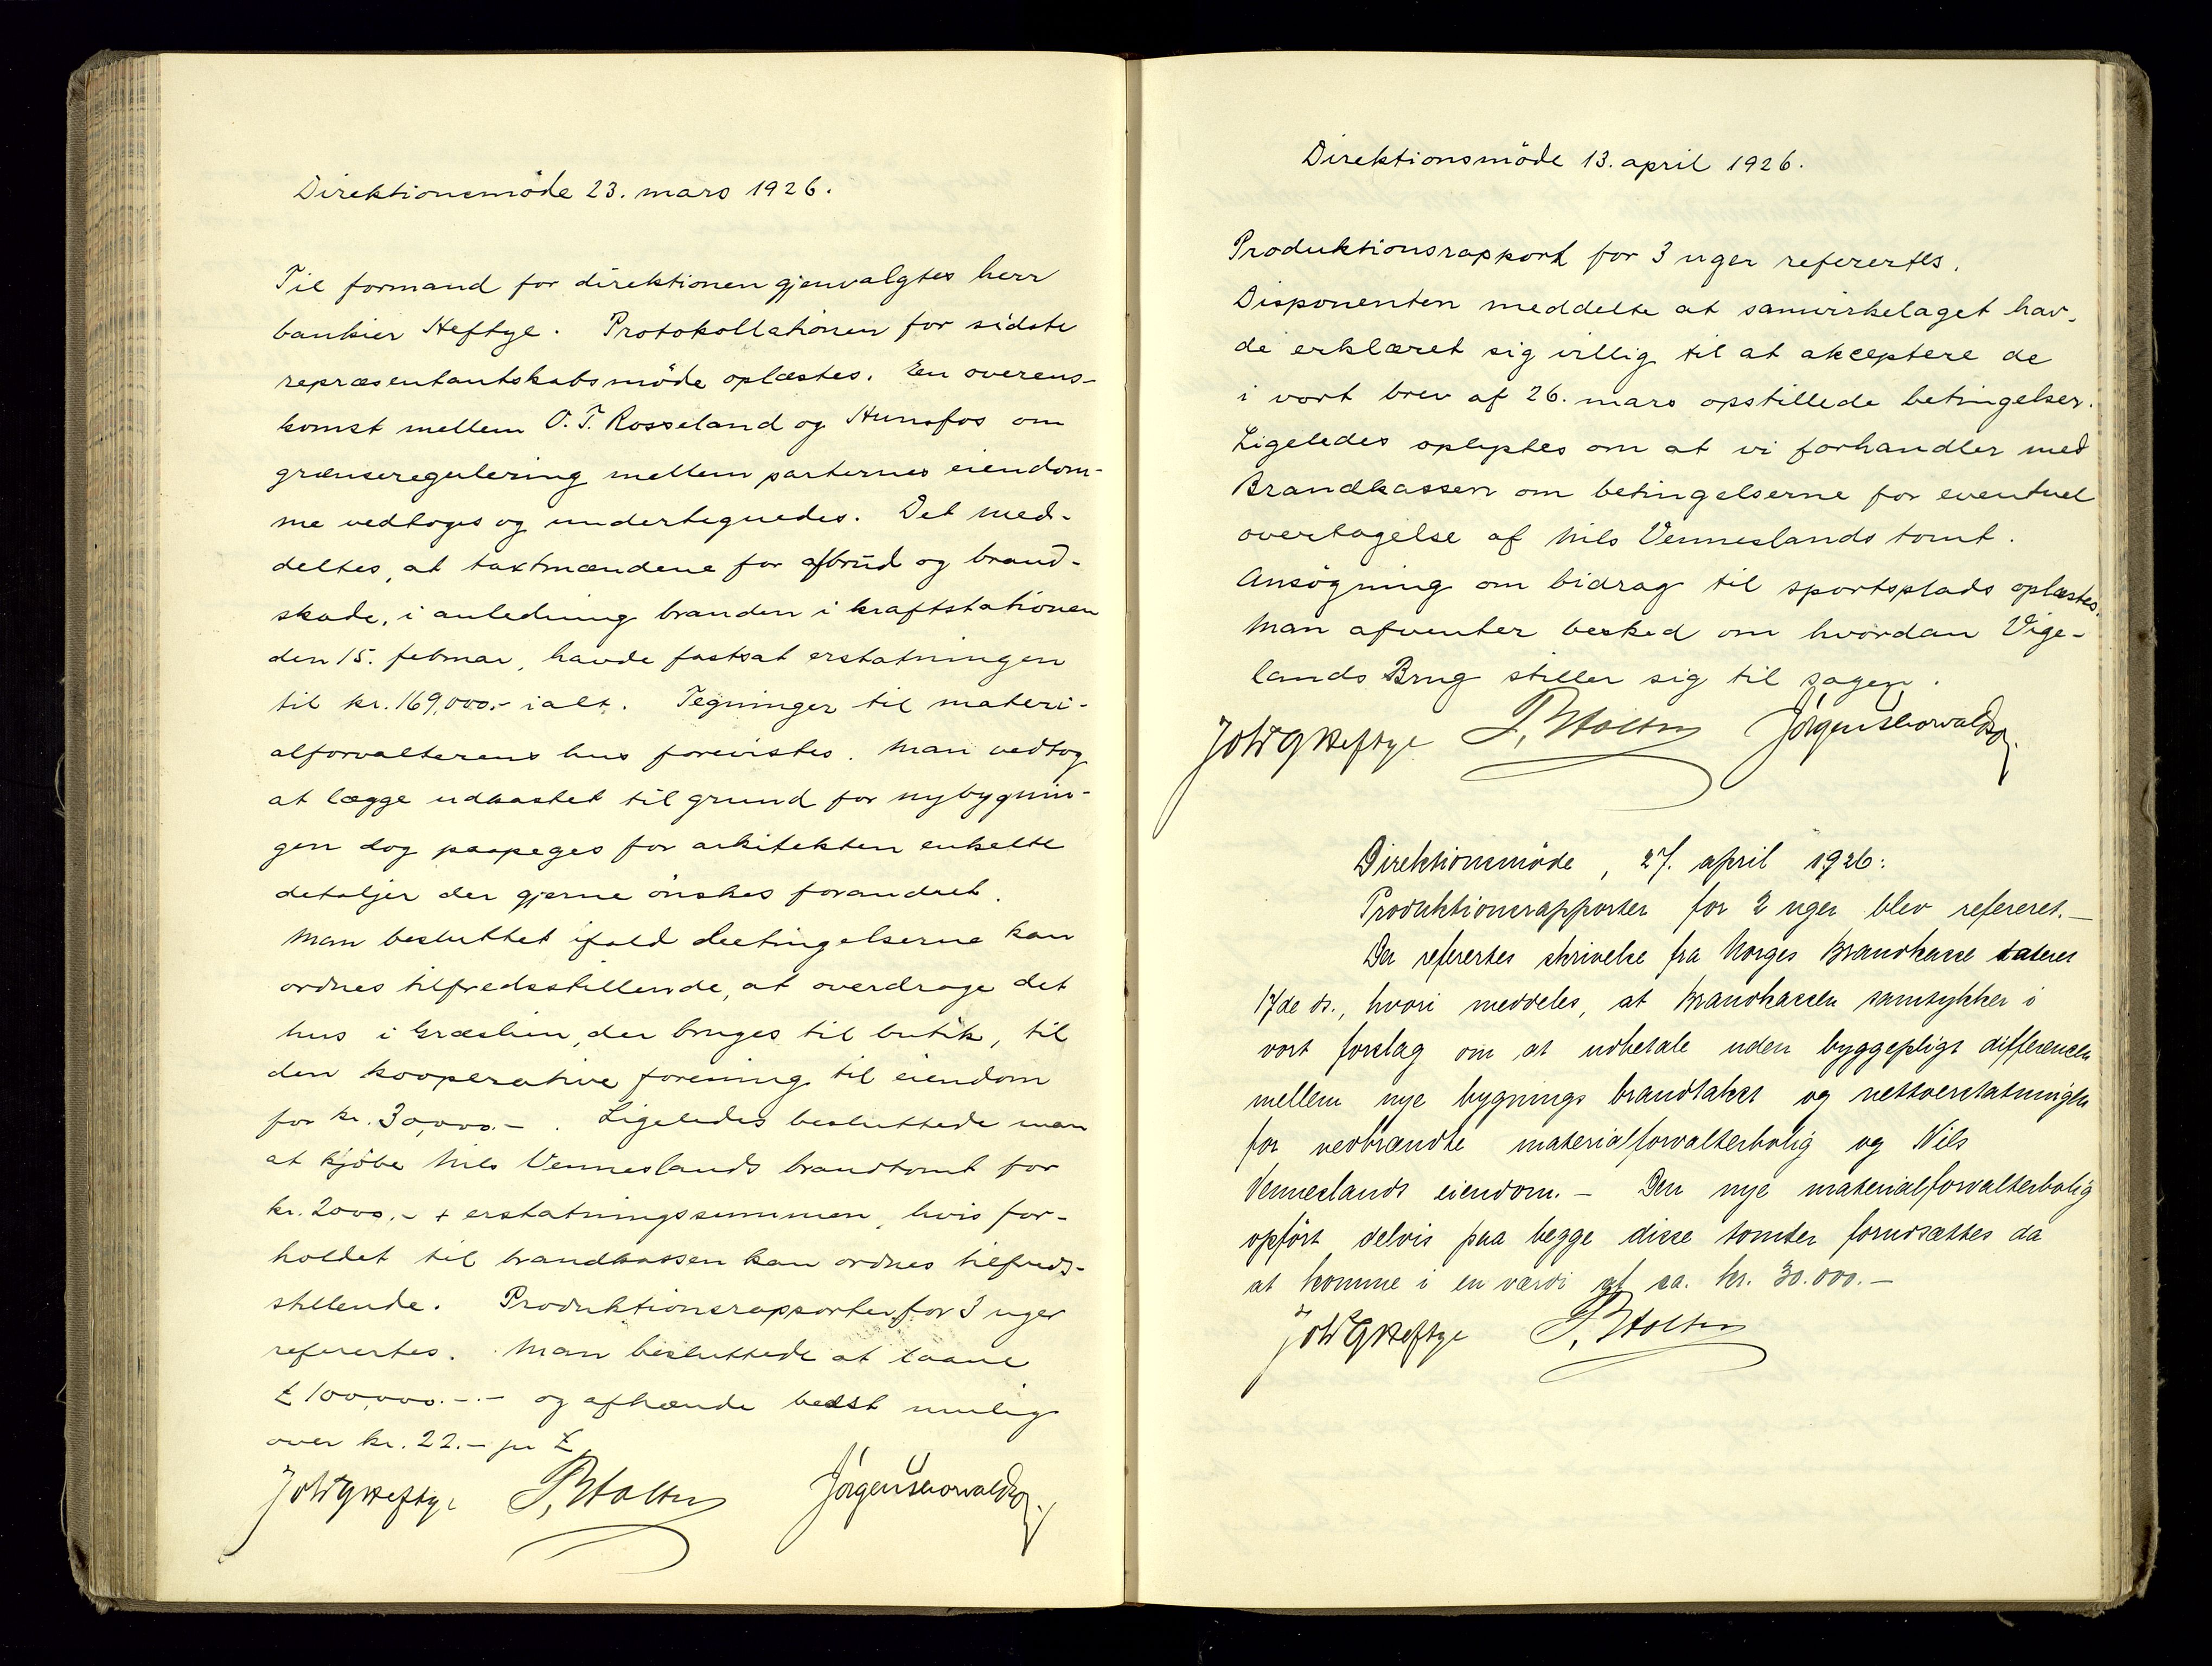 Direktionsmöde 23. mars 1926.
Til formand for direktionen gjenvalgtes herr
bankier Heftye. Protokollationen for sidste
repræsentantskabsmöde oplæstes. En overens-
komst mellem O. T. Rosseland og Hunsfos om
grænseregulering mellem parternes eiendom-
me vedtoges og undertegnedes. Det med-
deltes, at taxtmændene for afbrud og brand-
skade, i anledning branden i kraftstationen
den 15. februar, havde fastsat erstatningen
til kr. 169,000.- ialt. Tegninger til materi-
alforvalterens hus forevistes. Man vedtog
at lægge udkastet til grund for nybygnin-
gen dog paapeges for arkitekten enkelte
detaljer der gjerne önskes forandret.
Man besluttet ifald betingelserne kan
ordnes tilfredsstillende, at overdrage det
hus i Græslien, der bruges til butik, til
den kooperative forening til eiendom
for kr. 30,000.- . Ligeledes besluttede man
at kjöbe Nils Venneslands brandtomt for
kr. 2000.- + erstatningssummen, hvis for-
holdet til brandkassen kan ordnes tilfreds-
stillende. Produktionsrapporter for 3 uger
refertes. Man besluttede at laane
£ 100,000.-.- og afhænde bedst mulig
over kr. 22.- pr £
Joh Heftye P. Holten Jörgen
Direktionsmöde 13. april 1926.
Produktionsrapport for 3 uger refertes.
Disponenten meddelte at samvirkelaget hav-
de erklæret sig villig til at akceptere de
i vort brev af 26. mars opstillede betingelser.
Ligeledes oplystes om at vi forhandler med
Brandkassen om betingelserne for eventuel
overtagelse af Nils Venneslands tomt.
Ansögning om bidrag til sportsplads oplæstes.
Man afventer besked om hvordan Vige-
lands Brug stiller sig til sagen.
Joh Heftye P. Holten Jörgen
Direktionsmöde, 27. april 1926:
Produktionsrapporter for 2 uger blev refereret.-
Der refertes skrivelse fra Norges Brandkasse dateret
17de ds., hvori meddeles, at Brandkassen samtykker i
vort forslag om at udbetale uden byggepligt differencen
mellem nye bygnings brandtakst og nettoerstatningen
for nedbrændte materialforvalterbolig og Nils
Venneslands eiendom.- Den nye materialforvalterbolig
opfört delvis paa begge disse tomter forudsættes da
at komme i en værdi af ca. kr. 30.000.-
Joh Heftye P. Holten